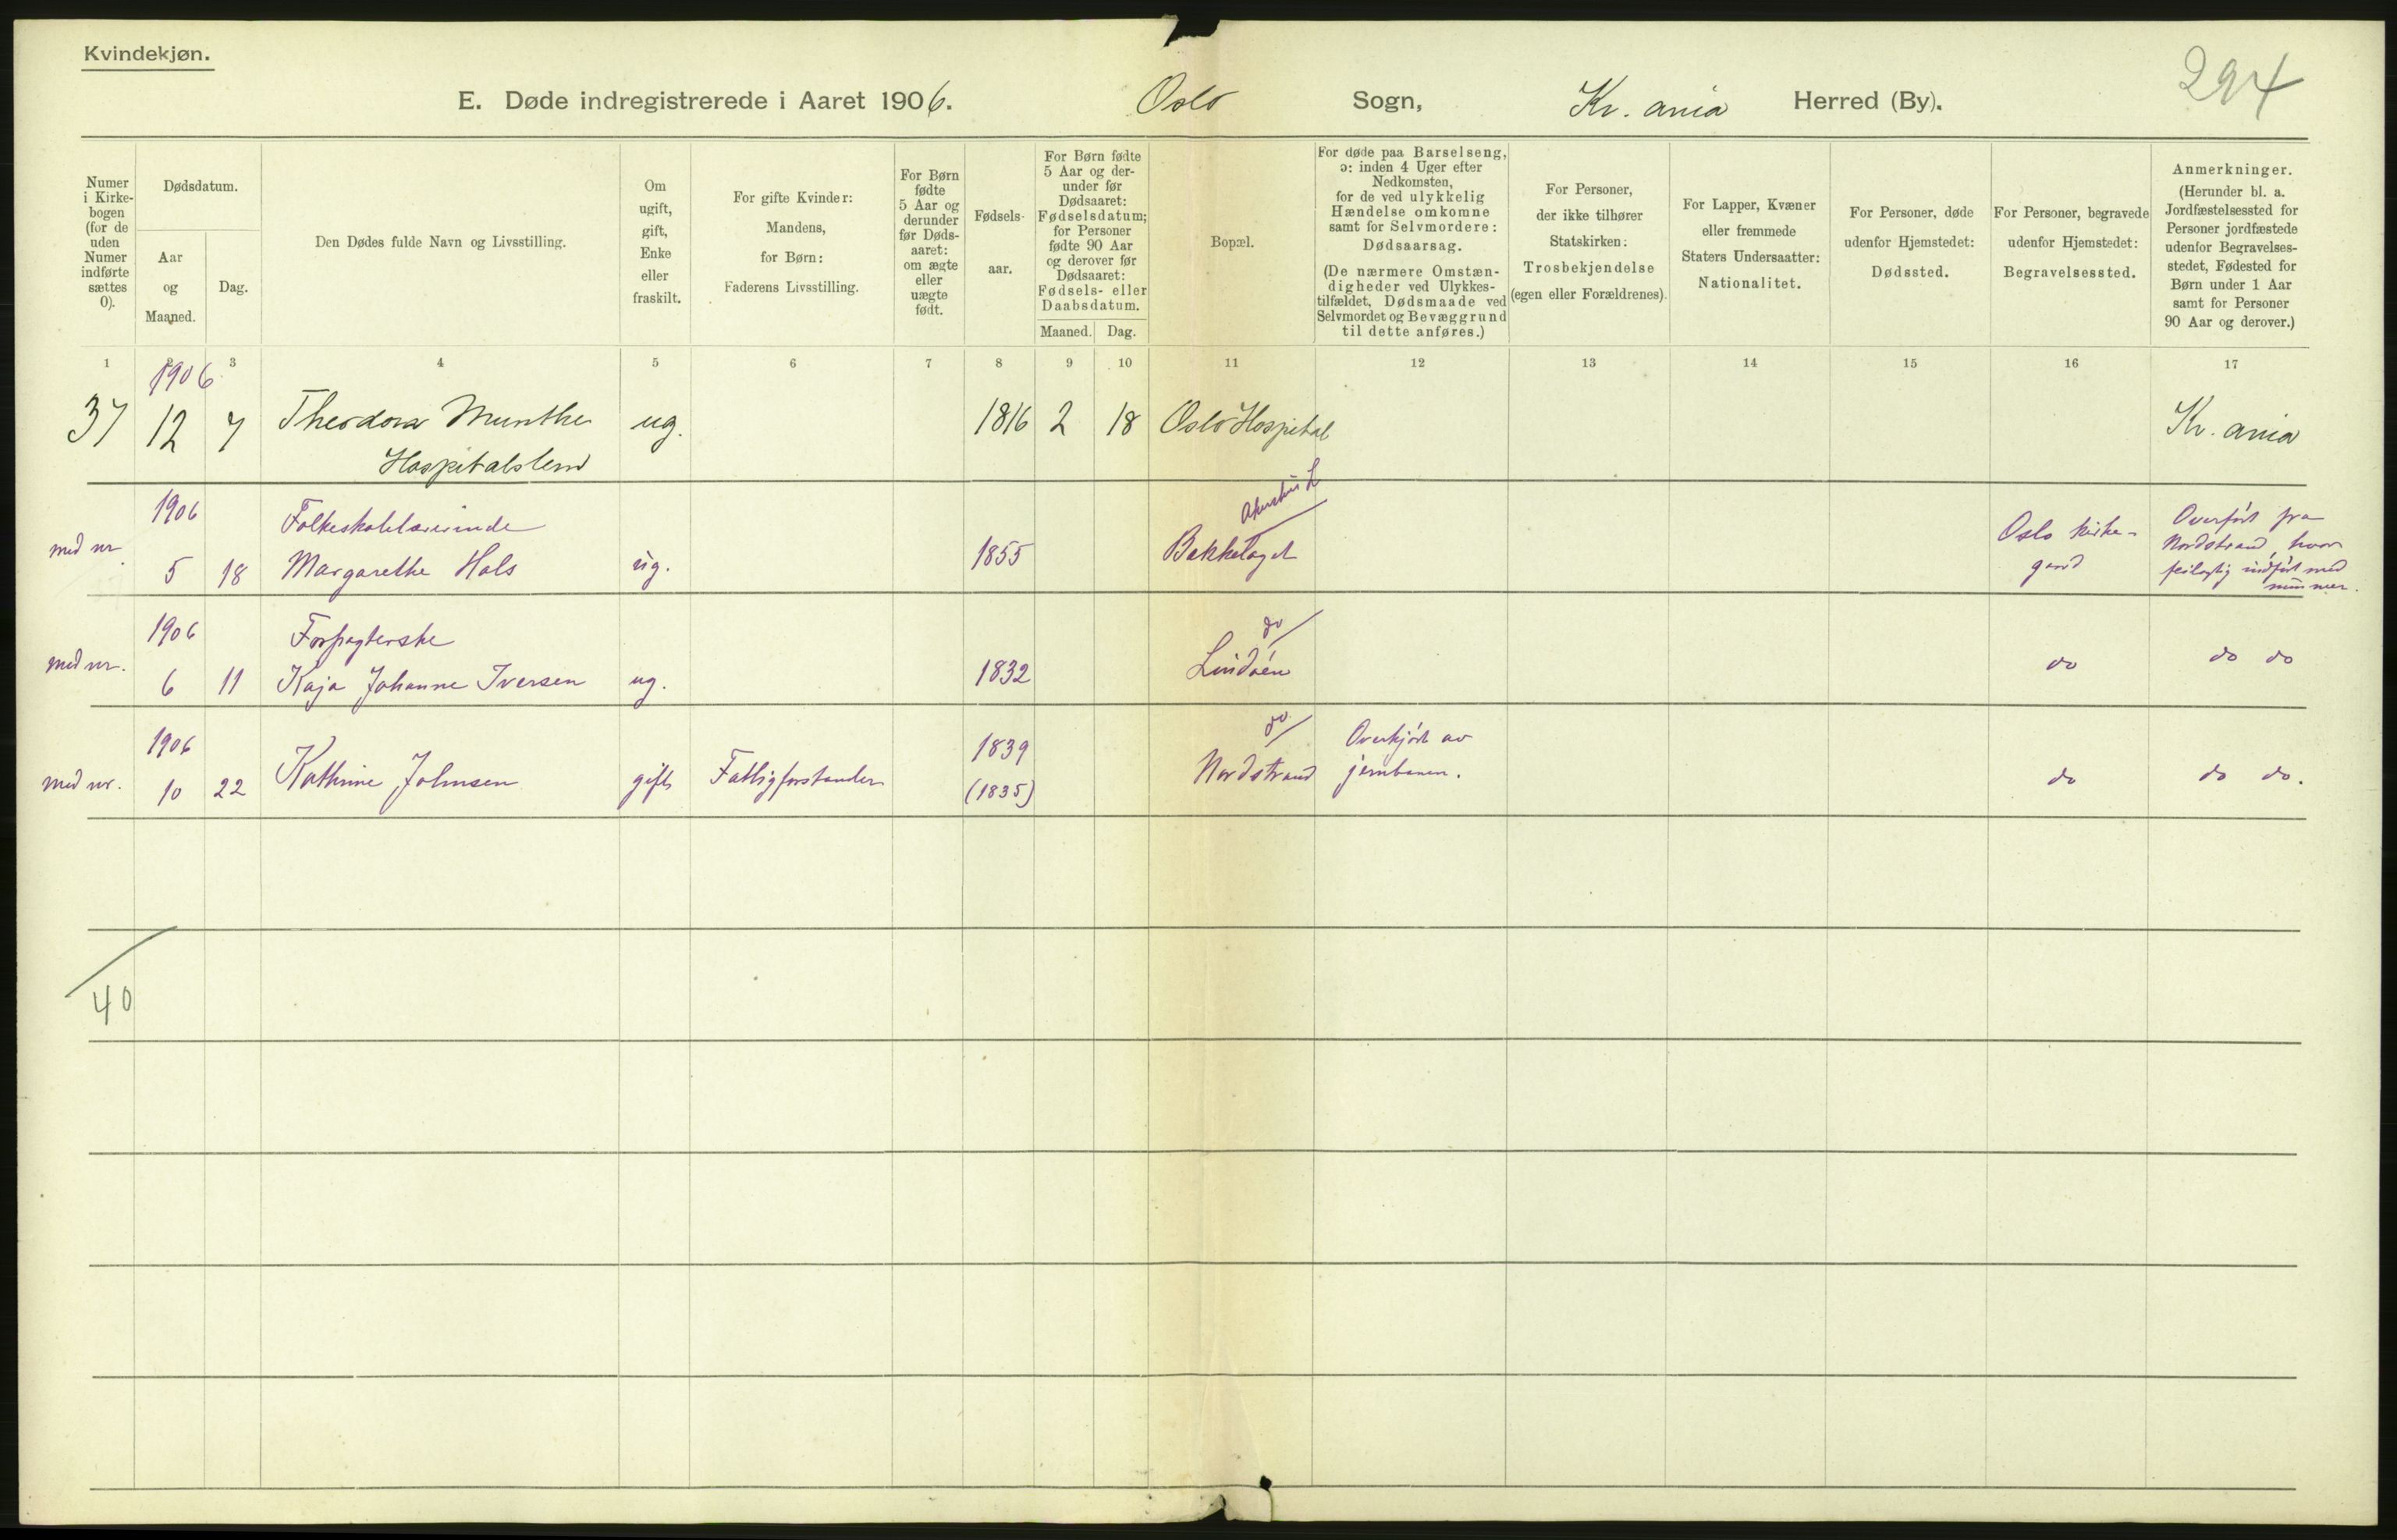 Kvindekjøn.
E. Døde indregistrerede i Aaret 1906. Oslo Sogn, Kr. ania Herred (By).
294
Numer
i Kirke-
bogen
(for de
uden
Numer
indførte
sættes
0).
Dødsdatum.
Aar
og
Maaned.
Dag.
Den Dødes fulde Navn og Livsstilling.
Om
ugift,
gift,
Enke
eller
fraskilt.
For gifte Kvinder:
Mandens,
for Børn:
Faderens Livsstilling.
For Børn
fødte
5 Aar og
derunder
før Døds-
aaret:
om ægte
eller
uægte
født.
Fødsels-
aar.
For Børn fødte
5 Aar og der-
under før
Dødsaaret:
Fødselsdatum;
for Personer
fødte 90 Aar
og derover før
Dødsaaret:
Fødsels- eller
Daabsdatum.
Maaned. Dag.
Bopæl.
For døde paa Barselseng,
ɔ: inden 4 Uger efter
Nedkomsten,
for de ved ulykkelig
Hændelse omkomne
samt for Selvmordere:
Dødsaarsag.
(De nærmere Omstæn-
digheder ved Ulykkes-
tilfældet, Dødsmaade ved
Selvmordet og Bevæggrund
til dette anføres.)
For Personer,
der ikke tilhører
Statskirken:
Trosbekjendelse
(egen eller Forældrenes).
For Lapper, Kvæner
eller fremmede
Staters Undersaatter:
Nationalitet.
For Personer, døde
udenfor Hjemstedet:
Dødssted.
For Personer, begravede
udenfor Hjemstedet:
Begravelsessted.
Anmerkninger.
(Herunder bl. a.
Jordfæstelsessted for
Personer jordfæstede
udenfor Begravelses-
stedet, Fødested for
Børn under 1 Aar
samt for Personer
90 Aar og derover.)
1 2 3 4 5 6 7 8 9 10 11 12 13 14 15 16 17
1906
37 12 7 Theodora Munthe ug. 1816 2 18 Oslo Hospital Kr. ania
Hospitalslem
Akershus L
1906 Folkeskolelærerinde Oslo kirke- Overført fra
med nr. 5 18 Margarethe Hals ug. 1855 Bekkelaget gaard Nordstrand, hvor
feilagtig indført med
nummer.
1906 Forpagterske do
med nr. 6 11 Kaja Johanne Iversen ug. 1832 Lindøen do do do
1906 1839 do Overkjørt av
med nr. 10 22 Kathrine Johnsen gift Fattigforstander (1835) Nordstrand jernbanen. do do do.
40